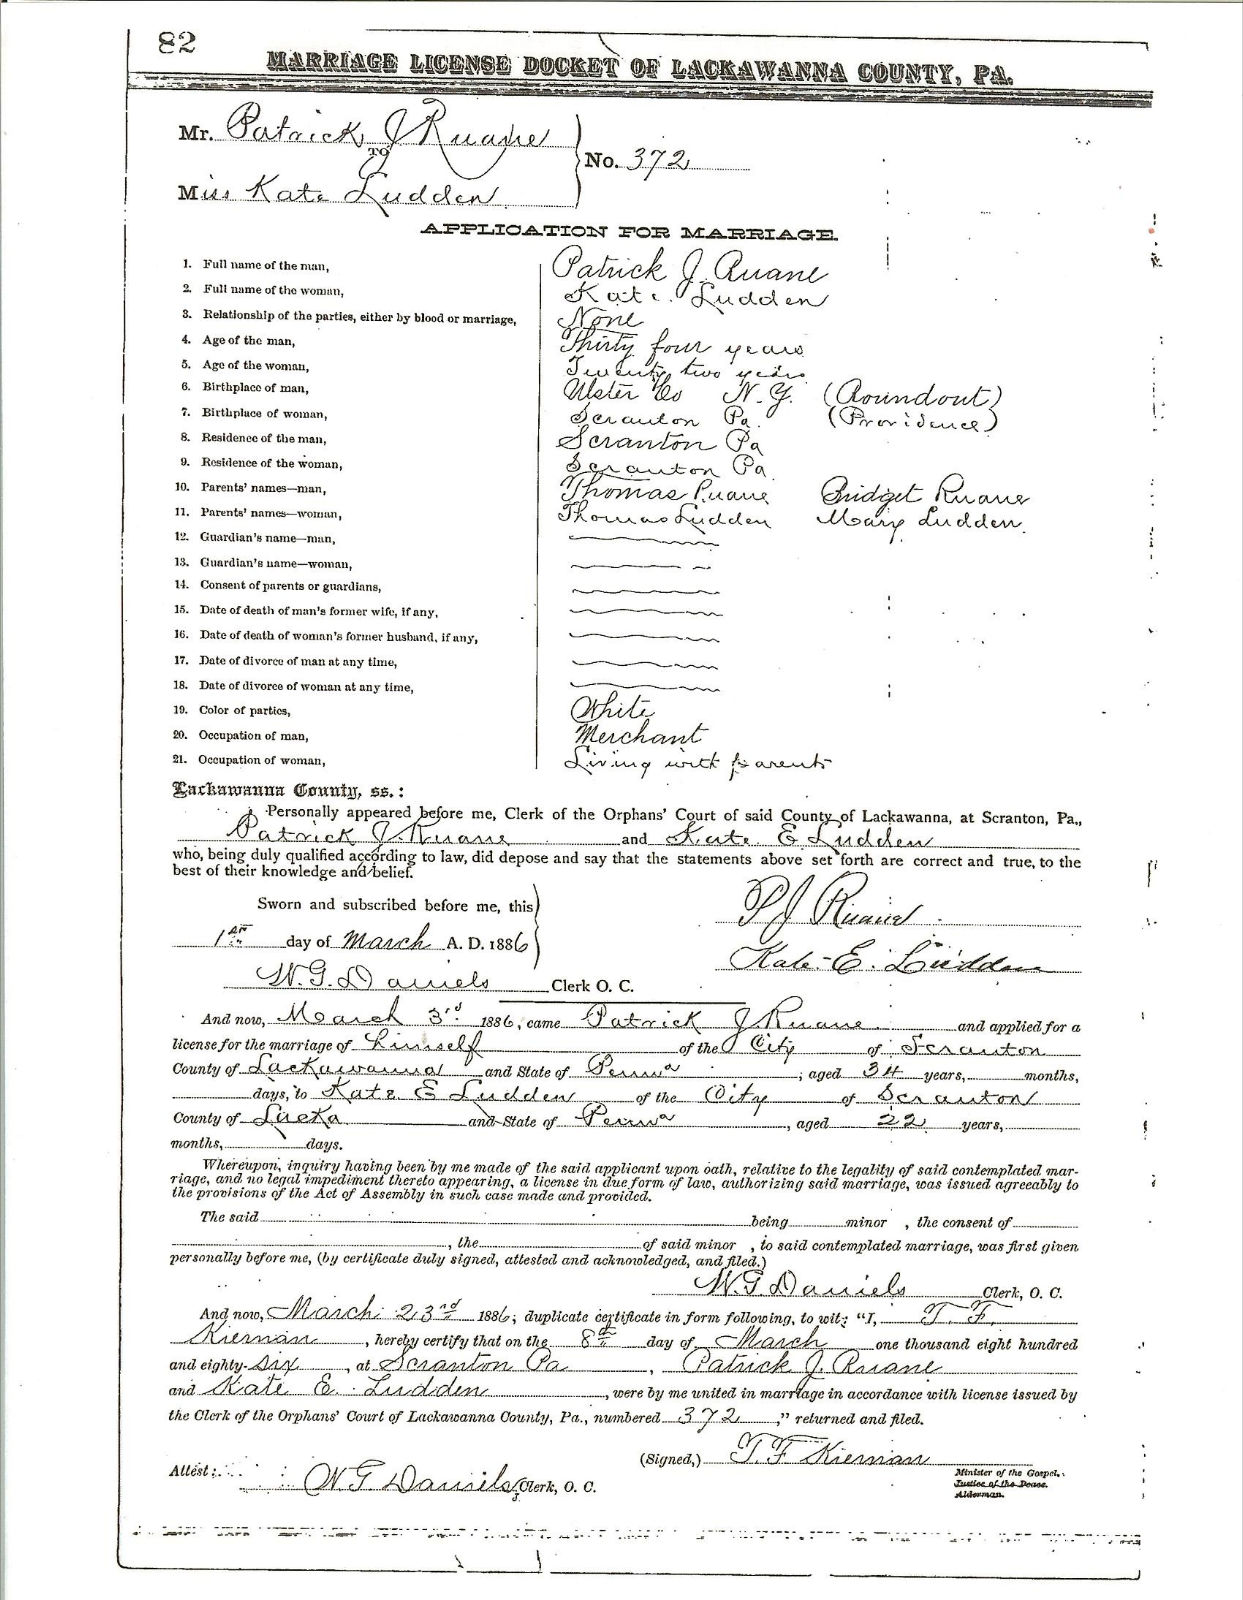 82
MARRIAGE LICENSE DOCKET OF LACKAWANNA COUNTY, PA.
Mr. Patrick J Ruane
TO
No. 372
Miss Kate Ludden
APPLICATION FOR MARRIAGE.
1. Full name of the man, Patrick J. Ruane
2. Full name of the woman, Kate Ludden
3. Relationship of the parties, either by blood or marriage, None
4. Age of the man, Thirty four years
5. Age of the woman, Twenty two years
6. Birthplace of man, Ulster Co N.Y. (Roundout)
7. Birthplace of woman, Scranton Pa. (Providence)
8. Residence of the man, Scranton Pa
9. Residence of the woman, Scranton Pa
10. Parents' names—man, Thomas Ruane Bridget Ruane
11. Parents' names—woman, Thomas Ludden Mary Ludden.
12. Guardian's name—man,
13. Guardian's name—woman,
14. Consent of parents or guardians,
15. Date of death of man's former wife, if any,
16. Date of death of woman's former husband, if any,
17. Date of divorce of man at any time,
18. Date of divorce of woman at any time,
19. Color of parties, White
20. Occupation of man, Merchant
21. Occupation of woman, Living with parents
Lackawanna County, ss.:
Personally appeared before me, Clerk of the Orphans' Court of said County of Lackawanna, at Scranton, Pa.,
Patrick J. Ruane and Kate E Ludden
who, being duly qualified according to law, did depose and say that the statements above set forth are correct and true, to the
best of their knowledge and belief.
Sworn and subscribed before me, this P J Ruane
1st day of March A. D. 1886
Kate E. Ludden
W. G. Daniels Clerk O. C.
And now, March 3rd 1886, came Patrick J Ruane and applied for a
license for the marriage of himself of the City of Scranton
County of Lackawanna and State of Penna; aged 34 years, months,
days, to Kate E Ludden of the City of Scranton
County of Lacka and State of Penna, aged 22 years,
months, days.
Whereupon, inquiry having been by me made of the said applicant upon oath, relative to the legality of said contemplated mar-
riage, and no legal impediment thereto appearing, a license in due form of law, authorizing said marriage, was issued agreeably to
the provisions of the Act of Assembly in such case made and provided.
The said being minor , the consent of
, the of said minor , to said contemplated marriage, was first given
personally before me, (by certificate duly signed, attested and acknowledged, and filed.)
W. G. Daniels Clerk, O. C.
And now, March 23rd 1886; duplicate certificate in form following, to wit: "I, T. F.
Kiernan, hereby certify that on the 8th day of March one thousand eight hundred
and eighty-six, at Scranton Pa, Patrick J. Ruane
and Kate E. Ludden, were by me united in marriage in accordance with license issued by
the Clerk of the Orphans' Court of Lackawanna County, Pa., numbered 372," returned and filed.
(Signed,) T. F Kiernan
Attest: W G Daniels, Clerk, O. C.
Minister of the Gospel.
Justice of the Peace.
Alderman.